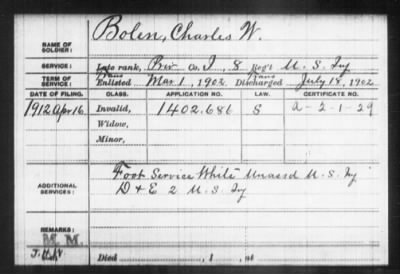 NAME OF SOLDIER: Bolen, Charles W.
SERVICE: Late rank, Priv Co. I, 8 Reg't U. S. Inf
TERM OF SERVICE: Trans Enlisted Mar. 1, 1902 Trans Discharged July 18, 1902
DATE OF FILING. CLASS. APPLICATION NO. LAW. CERTIFICATE NO.
1912 Apr 16. Invalid, 1402.686 S a-2-1-29
Widow,
Minor,
ADDITIONAL SERVICES: Foot Service White Unassd U. S. Inf
D + E 2 U. S. Inf
REMARKS:
M. M.
Died , 1 , at